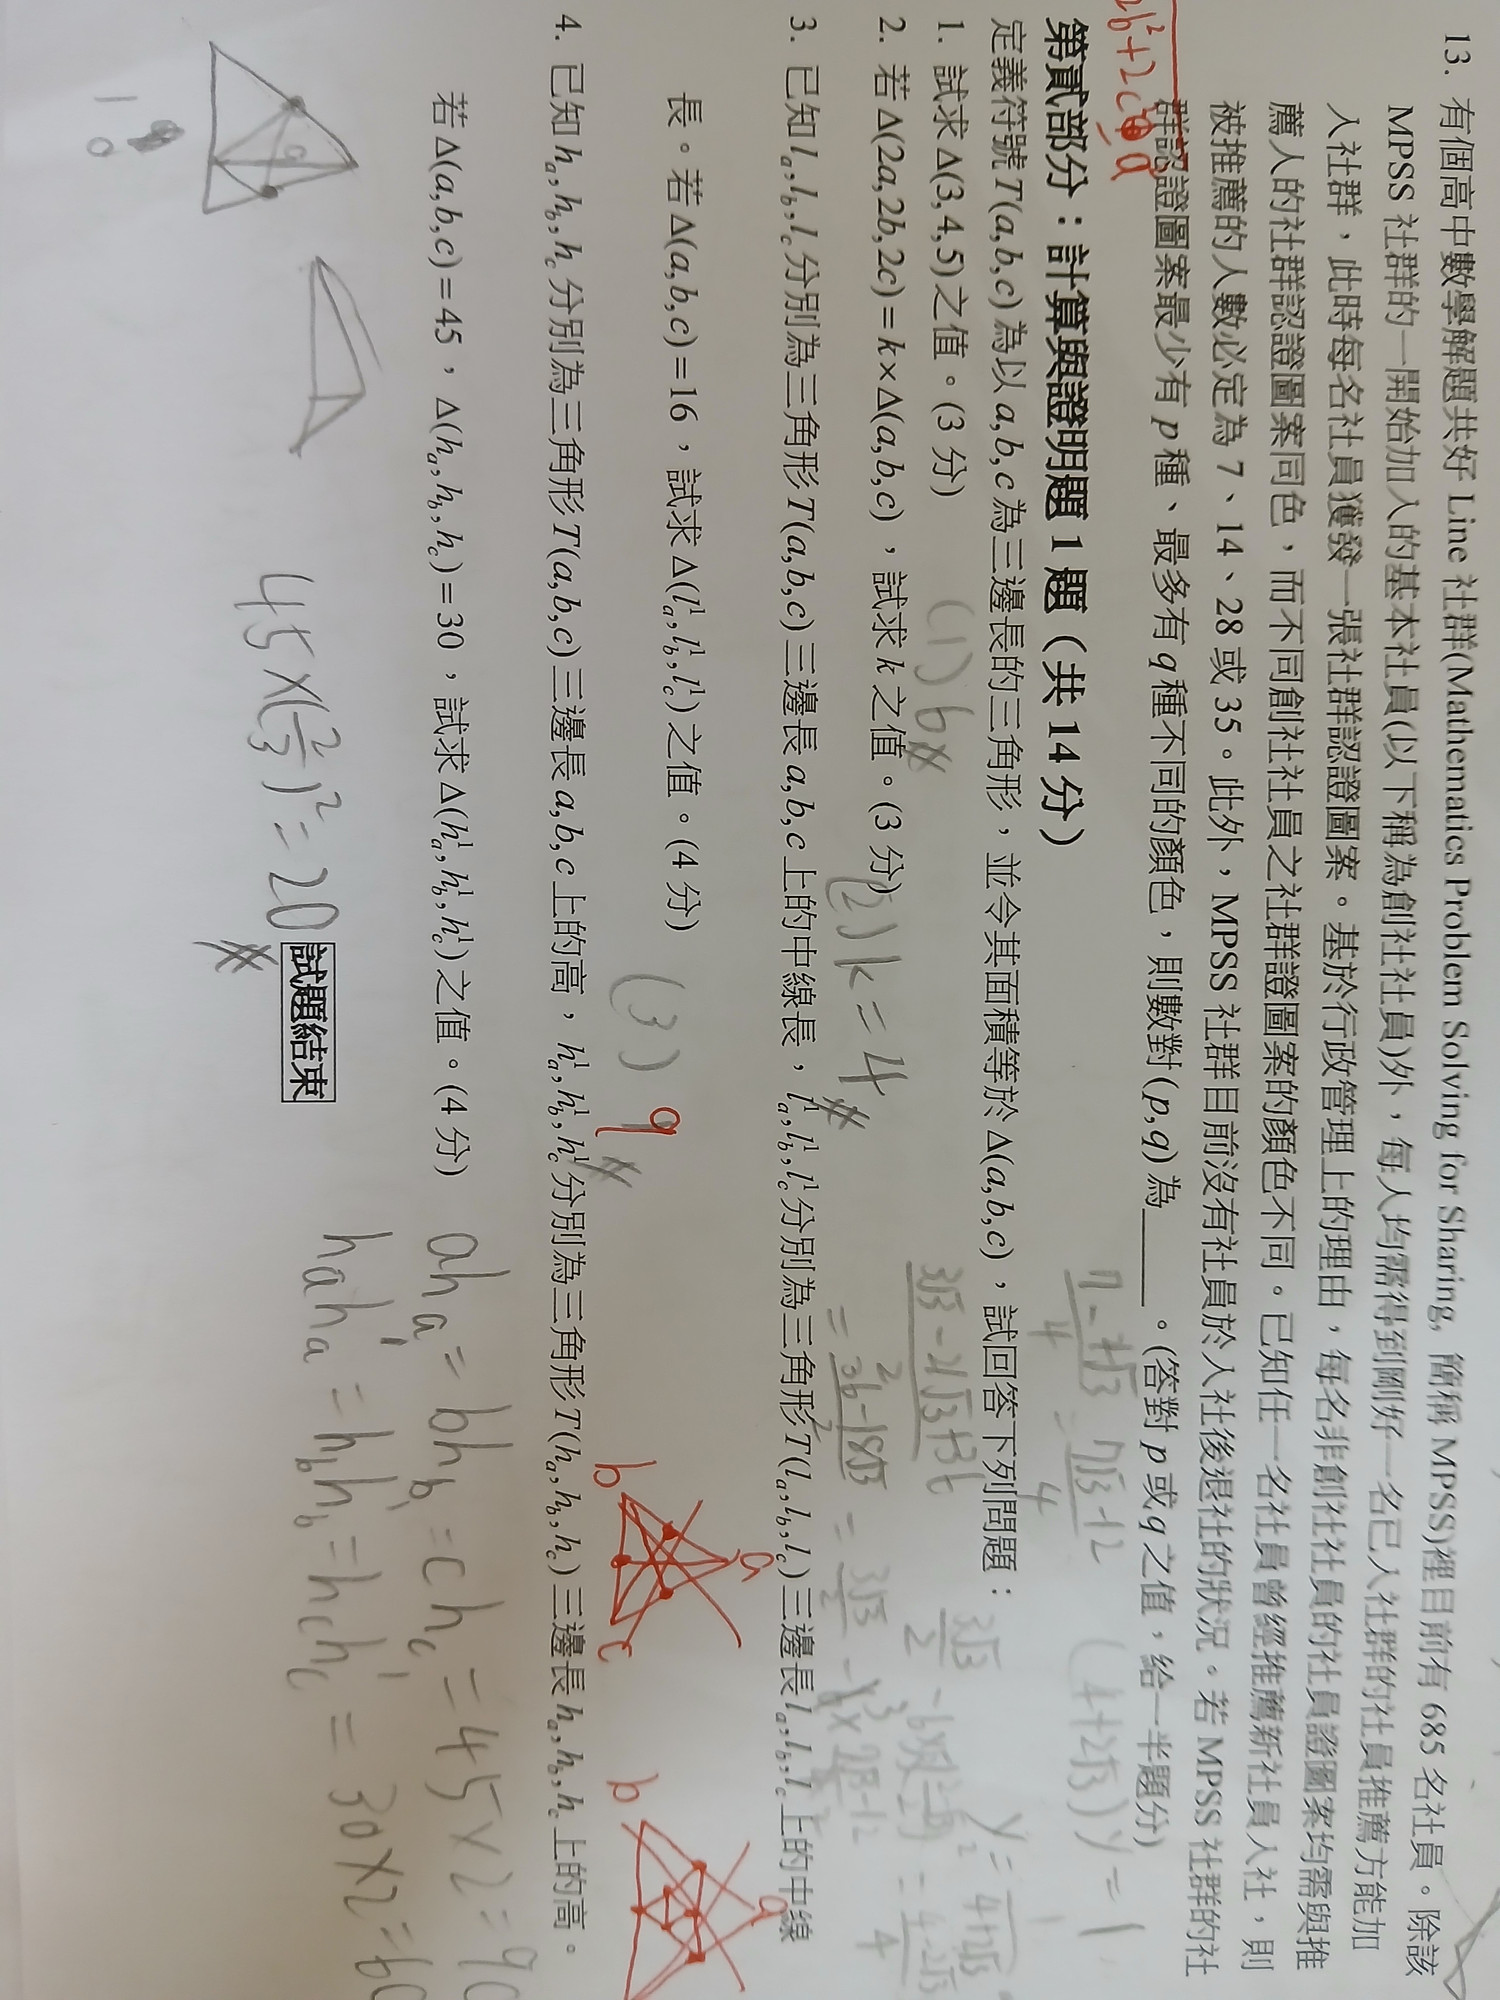 13. 有個高中數學解題共好 Line 社群(Mathematics Problem Solving for Sharing, 簡稱 MPSS)裡目前有 685 名社員。除該
MPSS 社群的一開始加入的基本社員(以下稱為創社社員)外，每人均需得到剛好一名已入社群的社員推薦方能加
入社群，此時每名社員獲發一張社群認證圖案。基於行政管理上的理由，每名非創社社員的社員證圖案均需與推
薦人的社群認證圖案同色，而不同創社社員之社群證圖案的顏色不同。已知任一名社員曾經推薦新社員入社，則
被推薦的人數必定為 7、14、28 或 35。此外，MPSS 社群目前沒有社員於入社後退社的狀況。若 MPSS 社群的社
群認證圖案最少有 p 種、最多有 q 種不同的顏色，則數對 (p,q) 為______。(答對 p 或 q 之值，給一半題分)
2b²+2c²
a
7-4√3/4 = 7√3-12/4
(4+2√3)y=1
第貳部分：計算與證明題 1 題（共 14 分）
定義符號 T(a,b,c) 為以 a,b,c 為三邊長的三角形，並令其面積等於 Δ(a,b,c)，試回答下列問題：
1. 試求 Δ(3,4,5) 之值。(3 分)
(1) 6
2. 若 Δ(2a,2b,2c) = k×Δ(a,b,c)，試求 k 之值。(3 分)
(2) k=4
3. 已知 l_a,l_b,l_c 分別為三角形 T(a,b,c) 三邊長 a,b,c 上的中線長，l_a^1,l_b^1,l_c^1 分別為三角形 T(l_a,l_b,l_c) 三邊長 l_a,l_b,l_c 上的中線
長。若 Δ(a,b,c)=16，試求 Δ(l_a^1,l_b^1,l_c^1) 之值。(4 分)
(3) 9
a
b
c
a
b
4. 已知 h_a,h_b,h_c 分別為三角形 T(a,b,c) 三邊長 a,b,c 上的高，h_a^1,h_b^1,h_c^1 分別為三角形 T(h_a,h_b,h_c) 三邊長 h_a,h_b,h_c 上的高。
若 Δ(a,b,c)=45，Δ(h_a,h_b,h_c)=30，試求 Δ(h_a^1,h_b^1,h_c^1) 之值。(4 分)
ah_a=bh_b=ch_c=45×2=90
h_ah_a'=h_bh_b'=h_ch_c'=30×2=60
45×(2/3)²=20
試題結束